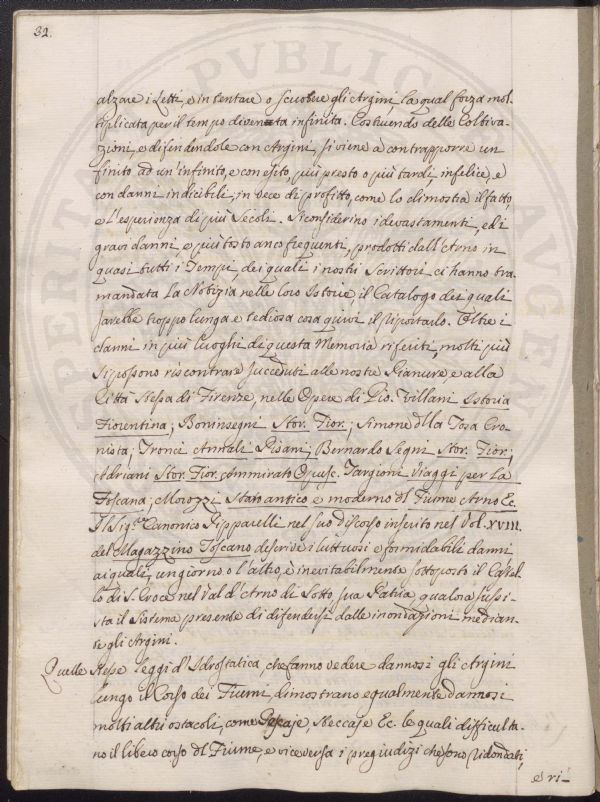 32.
alzare i Letti, e in tentare o scuotere gli Argini la qual forza mol-
tiplicata per il tempo diventa infinita. Costruendo delle Coltiva-
zioni, e difendendole con Argini, si viene a contrapporre un
finito ad un'infinito, e con esito, più presto o più tardi infelice, e
con danni indicibili, in vece di profitto, come lo dimostra il fatto,
e l'esperienza di più Secoli. Si considerino i devastamenti, ed i
gravi danni, e più tosto anco frequenti, prodotti dall'Arno in
quasi tutti i Tempi, dei quali i nostri Scrittori ci hanno tra
mandata la Notizia nelle loro Istorie il Catalogo dei quali
sarebbe troppo lunga e tediosa cosa quivi il riportarlo. Oltre i
danni in più luoghi di questa Memoria riferiti, molti più
si possono riscontrare succeduti alle nostre Pianure, e alla
Città stessa di Firenze, nelle Opere di Gio. Villani Istoria
Fiorentina; Boninsegni Stor. Fior.; Simone dlla Tosa Cro-
nista; Tronci Annali Pisani; Bernardo Segni Stor. Fior;
Adriani Stor. Fior. Ammirato Opusc. Targioni Viaggi per la
Toscana; Morozzi Stato antico e moderno dl Fiume Arno Ec.
Il Sig.re Canonico Pipparelli nel suo discorso inserito nel Vol. XVIII.
del Magazzino Toscano descrive i luttuosi e formidabili danni
ai quali, un giorno o l'altro, è inevitabilmente sottoposto il Castel-
lo di S. Croce nel Val d'Arno di Sotto, sua Patria qualora sussi-
sta il Sistema presente di difendersi dalle inondazioni median-
te gli Argini.
Quelle stesse leggi d'Idrostatica, che fanno vedere dannosi gli Argini
lungo il Corso dei Fiumi, dimostrano egualmente dannosi
molti altri ostacoli, come Pescaje, Steccaje Ec. le quali difficulta-
no il libero corso dl Fiume, e viceversa i pregiudizj che sono ridondati,
e ri-